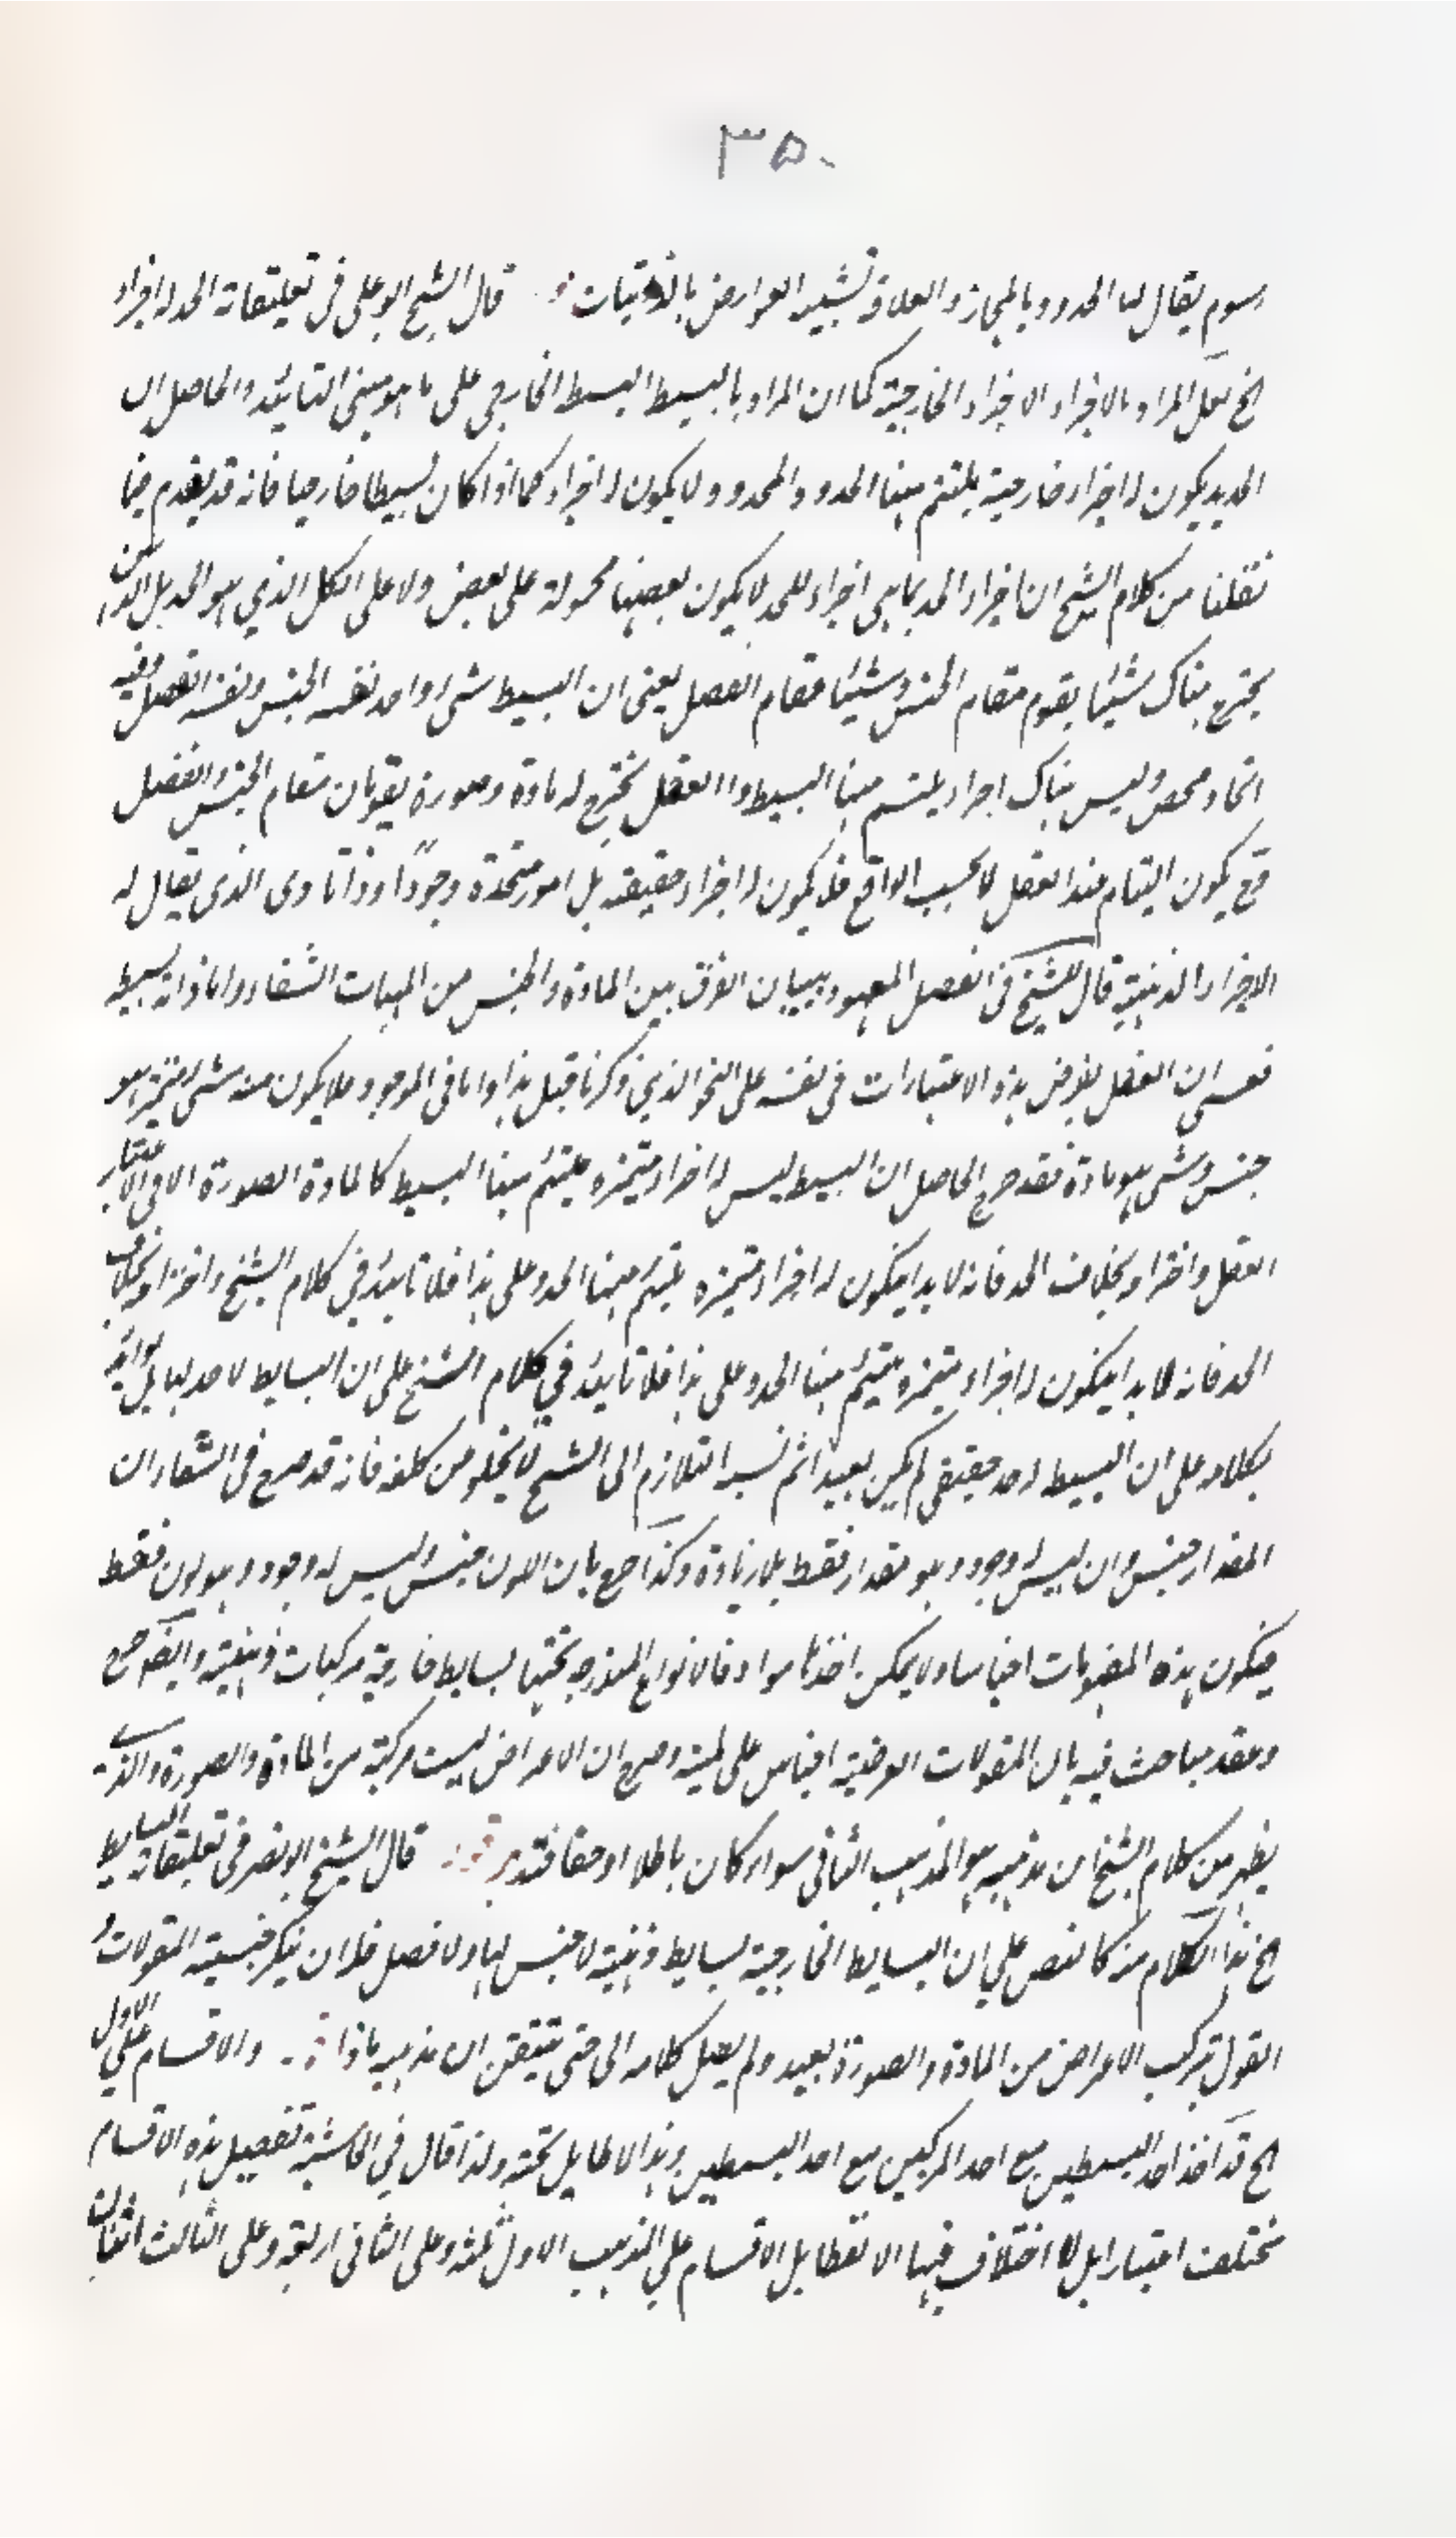 ٣٥٠
رسوم يقال لها الحدود بالمجاز والعلاقة تشبيه العوارض بالذاتيات قال الشيخ ابو علي في تعليقاته الحد له اجزاء
الخ لعل المراد بالاجزاء الاجزاء الخارجية كما ان المراد بالبسيط البسيط الخارجي على ما هو مبنى التائيد والحاصل ان
الحد يكون له اجزاء خارجية يلتئم منها الحدود والمحدود لا يكون له اجزاء كما اذا كان بسيطا خارجيا فانه قد تقدم فيما
نقلنا من كلام الشيخ ان اجزاء الحد بما هى اجزاء للحد لا يكون بعضها محمولة على بعض ولا على الكل الذي هو الحد بل الذهن
يخترع هناك شيئا يقوم مقام الجنس وشيئا مقام الفصل يعنى ان البسيط شىء واحد نفسه الجنس ونفسه الفصل وفيه
اتحاد محض وليس هناك اجزاء يلتئم منها البسيط والعقل يخترع له مادة وصورة يقومان مقام الجنس والفصل
فح يكون التيام عند العقل لا بحسب الواقع فلا يكون له اجزاء حقيقة بل امور متحدة وجودا وذاتا وى الذى يقال له
الاجزاء الذهنية قال الشيخ فى الفصل المعهود ببيان الفرق بين المادة والجنس من الهيات الشفاء واما ذاته بسيطة
فعسى ان العقل يفرض هذه الاعتبارات فى نفسه على النحو الذي ذكرنا قبل هذا واما فى الوجود فلا يكون منه شىء متميز هو
جنس وشىء هو مادة فقد صرح الحاصل ان البسيط ليس له اجزاء متميزه يلتئم منها البسيط كالمادة الصورة الا فى الاعتبار
العقل واختراعه بخلاف الحد فانه لا بد ان يكون له اجزاء متميزه يلتئم منها الحد وعلى هذا فلا تائيد في كلام الشيخ واختراعه بخلاف
الحد فانه لا بد ان يكون له اجزاء متميزه يلتئم منها الحد وعلى هذا فلا تائيد في كلام الشيخ على ان البسايط لا حد لها بل لو ايد
بكلامه على ان البسيط له حد حقيقى لم يكن بعيدا ثم نسبه التلازم الى الشيخ لا يخلو من كلفه فانه قد صرح فى الشفاء ان
المقدار جنس وان ليس له وجود وهو مقدار فقط بلا زيادة وكذا صرح بان اللون جنس وليس له وجود وهو لون فقط
فيكون هذه المفهومات اجناسا ولا يمكن اخذها مواد فالانواع المندرجه تحتها بسايط خارجية مركبات ذهنية وايضا صرح
وعقد مباحث فيه بان المقولات العرضية اجناس على لمية وصرح ان الاعراض ليست مركبة من المادة والصورة والذي
يظهر من كلام الشيخ ان مذهبه هو المذهب الثانى سواء كان باطلا او حقا فتدبر قوله قال الشيخ ابو نصر فى تعليقاته البسايط
الخ هذا الكلام منه كالنص علي ان البسايط الخارجية بسايط ذهنية لا جنس لها ولا فصل فله ان ينكر جنسية المقولات و
القول بتركيب الاعراض من المادة والصورة بعيد ولم يصل كلامه الى حتى يتيقن ان مذهبه ماذا قوله والاقسام علي الاول
الخ قد اخذ احد البسيطين مع احد المركبين مع احد البسيطين وهذا لا طايل تحته ولذا قال في الحاشية تفصيل هذه الاقسام
مختلف اعتبارا بل لا اختلاف فيها الا لفظا بل الاقسام علي المذهب الاول ثلثة وعلى الثانى اربعة وعلى الثالث اثنان